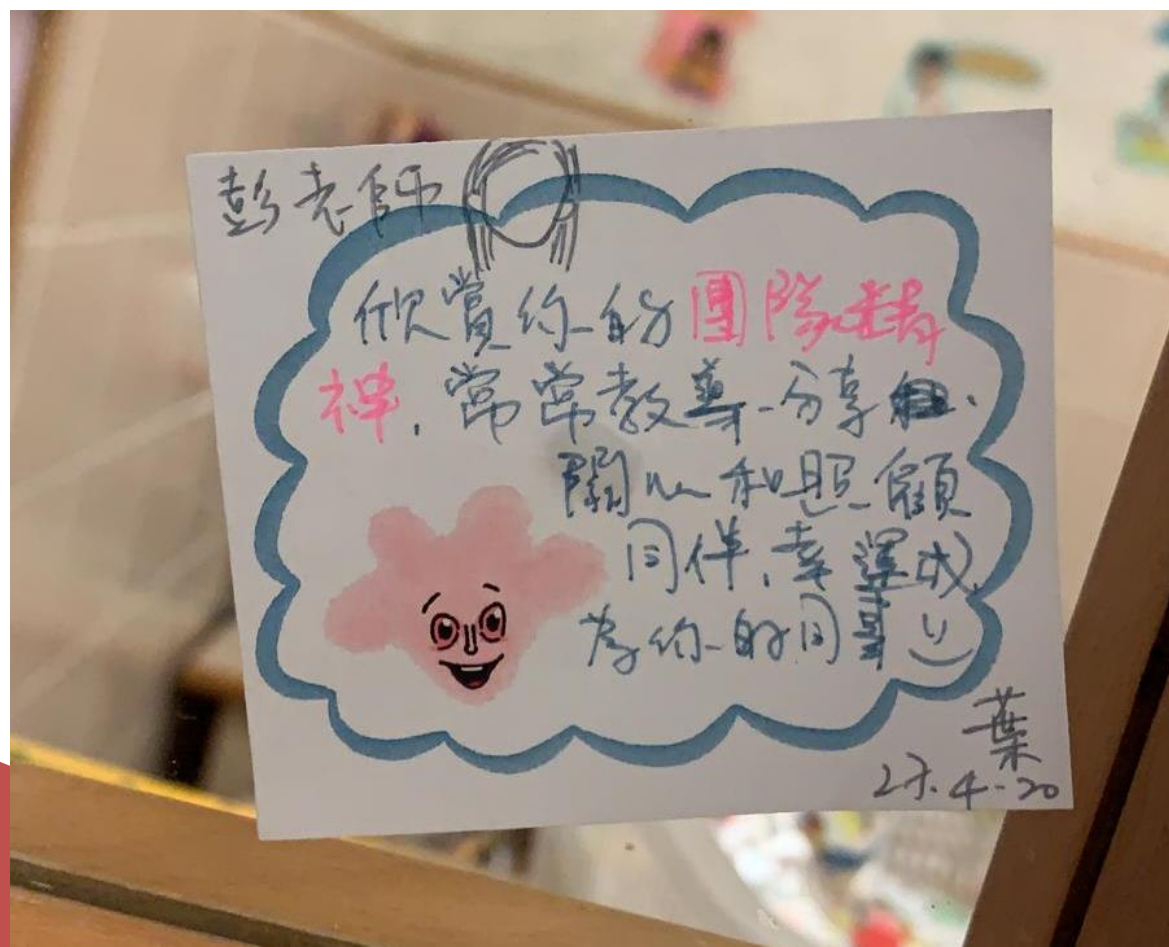 彭老師
欣賞你的團隊精
神,常常教導、分享、
關心和照顧
同伴,幸運成
為你的同事
葉
27.4.20